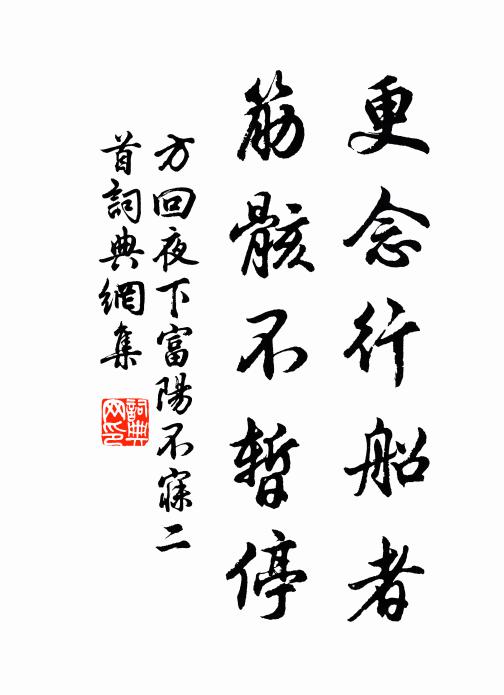 更念行船者
筋骸不暫停
方回夜下富陽不寐二
首詞典網集
詞典
网印